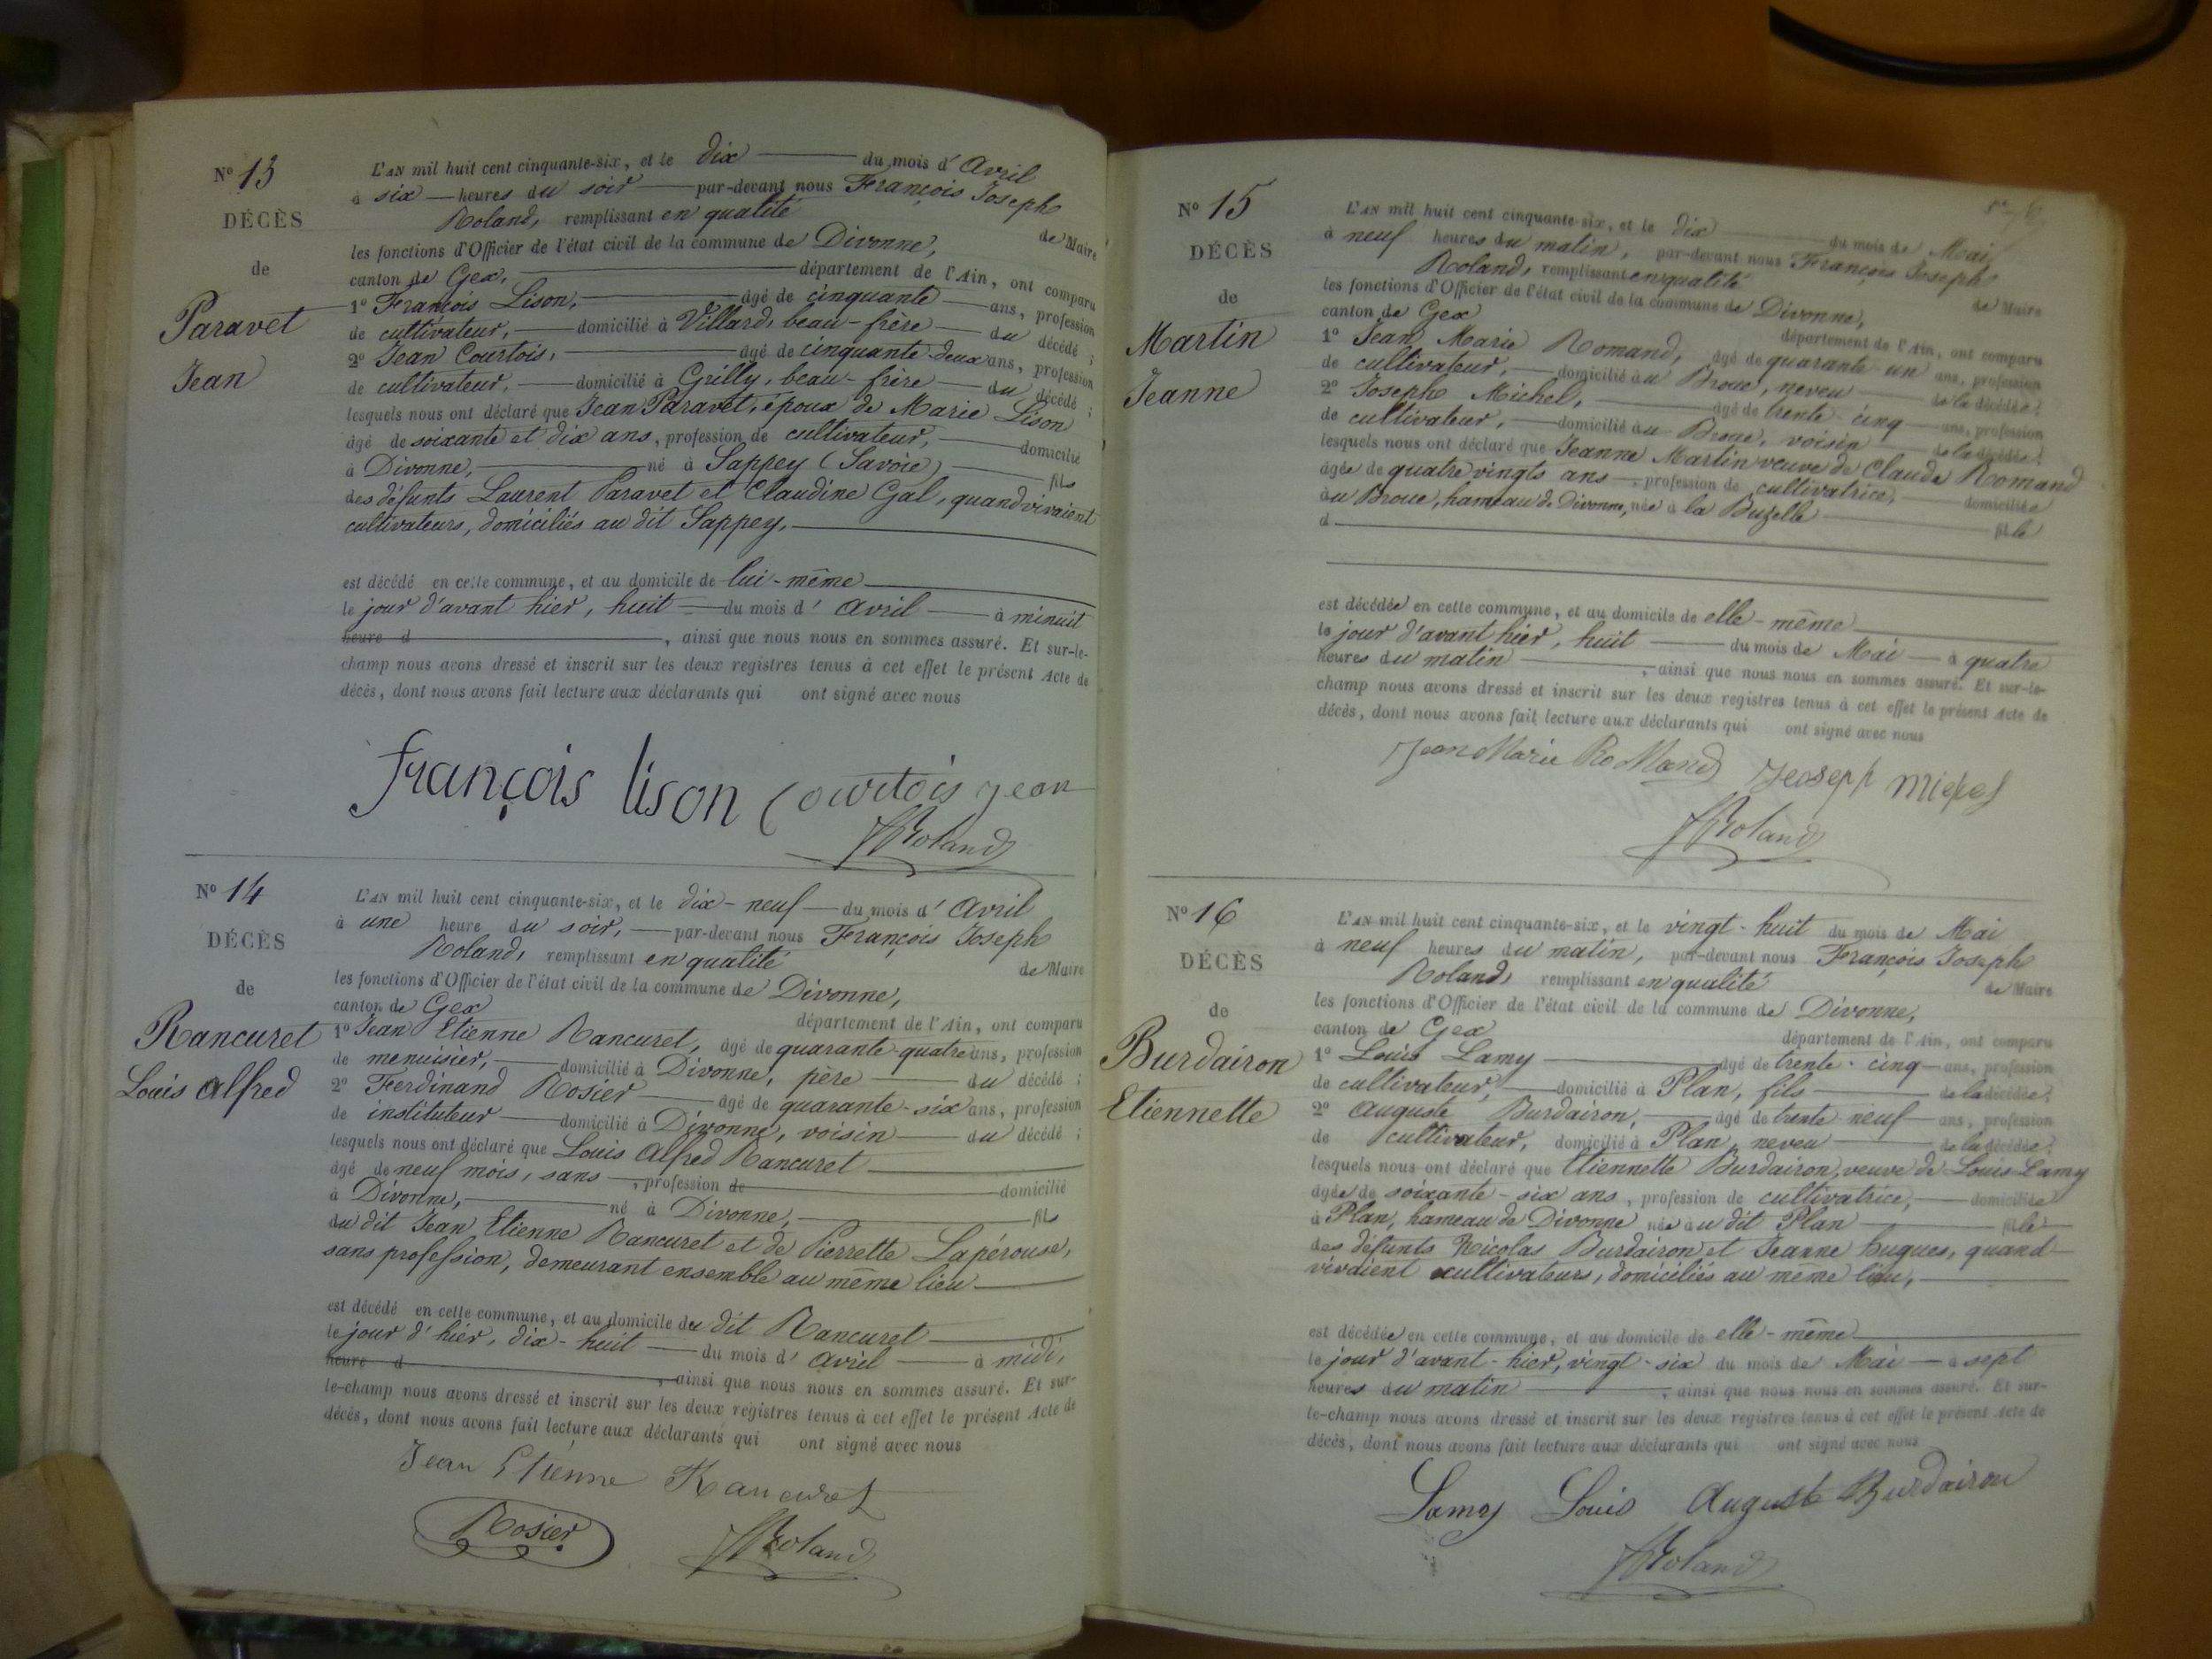 Nº 13
DÉCÈS
de
Paravet
Jean
L'AN mil huit cent cinquante-six, et le dix du mois d' Avril
à six heures du soir par-devant nous François Joseph
Roland, remplissant en qualité de Maire
les fonctions d'Officier de l'état civil de la commune de Divonne,
canton de Gex, département de l'Ain, ont comparu
1º François Lison, âgé de cinquante ans, profession
de cultivateur, domicilié à Villard, beau-frère du décédé ;
2º Jean Courtois, âgé de cinquante deux ans, profession
de cultivateur, domicilié à Grilly, beau-frère du décédé ;
lesquels nous ont déclaré que Jean Paravet, époux de Marie Lison
âgé de soixante et dix ans, profession de cultivateur, domicilié
à Divonne, né à Sappey (Savoie) fils
des défunts Laurent Paravet et Claudine Gal, quand vivaient
cultivateurs, domiciliés au dit Sappey,
est décédé en cette commune, et au domicile de lui-même
le jour d'avant hier, huit du mois d' Avril à minuit
heure d , ainsi que nous nous en sommes assuré. Et sur-le-
champ nous avons dressé et inscrit sur les deux registres tenus à cet effet le présent Acte de
décès, dont nous avons fait lecture aux déclarants qui ont signé avec nous
françois lison Courtois jean
FJRoland
Nº 14
DÉCÈS
de
Rancuret
Louis Alfred
L'AN mil huit cent cinquante-six, et le dix-neuf du mois d' Avril
à une heure du soir, par-devant nous François Joseph
Roland, remplissant en qualité de Maire
les fonctions d'Officier de l'état civil de la commune de Divonne,
canton de Gex département de l'Ain, ont comparu
1º Jean Etienne Rancuret, âgé de quarante-quatre ans, profession
de menuisier, domicilié à Divonne, père du décédé ;
2º Ferdinand Rosier âgé de quarante-six ans, profession
de instituteur domicilié à Divonne, voisin du décédé ;
lesquels nous ont déclaré que Louis Alfred Rancuret
âgé de neuf mois, sans , profession de domicilié
à Divonne, né à Divonne, fils
du dit Jean Etienne Rancuret et de Pierrette Lapérouse,
sans profession, demeurant ensemble au même lieu
est décédé en cette commune, et au domicile du dit Rancuret
le jour d'hier, dix-huit du mois d' Avril à midi,
heure d , ainsi que nous nous en sommes assuré. Et sur-
le-champ nous avons dressé et inscrit sur les deux registres tenus à cet effet le présent Acte de
décès, dont nous avons fait lecture aux déclarants qui ont signé avec nous
Jean Etienne Rancuret
Rosier FJRoland
Nº 15
DÉCÈS
de
Martin
Jeanne
L'AN mil huit cent cinquante-six, et le dix du mois de Mai
à neuf heures du matin, par-devant nous François Joseph
Roland, remplissant en qualité de Maire
les fonctions d'Officier de l'état civil de la commune de Divonne,
canton de Gex département de l'Ain, ont comparu
1º Jean Marie Romand, âgé de quarante-un ans, profession
de cultivateur, domicilié au Broue, neveu de la décédée ;
2º Joseph Michel, âgé de trente cinq ans, profession
de cultivateur, domicilié au Broue, voisin de la décédée ;
lesquels nous ont déclaré que Jeanne Martin veuve de Claude Romand
âgée de quatre vingts ans , profession de cultivatrice, domiciliée
au Broue, hameau de Divonne, née à la Buzelle fille
d
est décédée en cette commune, et au domicile de elle-même
le jour d'avant hier, huit du mois de Mai à quatre
heures du matin , ainsi que nous nous en sommes assuré. Et sur-le-
champ nous avons dressé et inscrit sur les deux registres tenus à cet effet le présent Acte de
décès, dont nous avons fait lecture aux déclarants qui ont signé avec nous
Jean Marie RoMand Jeoseph Michel
FJRoland
Nº 16
DÉCÈS
de
Burdairon
Etiennette
L'AN mil huit cent cinquante-six, et le vingt-huit du mois de Mai
à neuf heures du matin, par-devant nous François Joseph
Roland, remplissant en qualité de Maire
les fonctions d'Officier de l'état civil de la commune de Divonne,
canton de Gex département de l'Ain, ont comparu
1º Louis Lamy âgé de trente-cinq ans, profession
de cultivateur, domicilié à Plan, fils de la décédée ;
2º Auguste Burdairon, âgé de trente neuf ans, profession
de cultivateur, domicilié à Plan, neveu de la décédée ;
lesquels nous ont déclaré que Etiennette Burdairon, veuve de Louis Lamy
âgée de soixante-six ans, profession de cultivatrice, domiciliée
à Plan, hameau de Divonne née au dit Plan fille
des défunts Nicolas Burdairon et Jeanne hugues, quand
vivaient cultivateurs, domiciliés au même lieu,
est décédée en cette commune, et au domicile de elle-même
le jour d'avant-hier, vingt-six du mois de Mai à sept
heures du matin , ainsi que nous nous en sommes assuré. Et sur-
le-champ nous avons dressé et inscrit sur les deux registres tenus à cet effet le présent Acte de
décès, dont nous avons fait lecture aux déclarants qui ont signé avec nous
Lamy Louis Auguste Burdairon
FJRoland